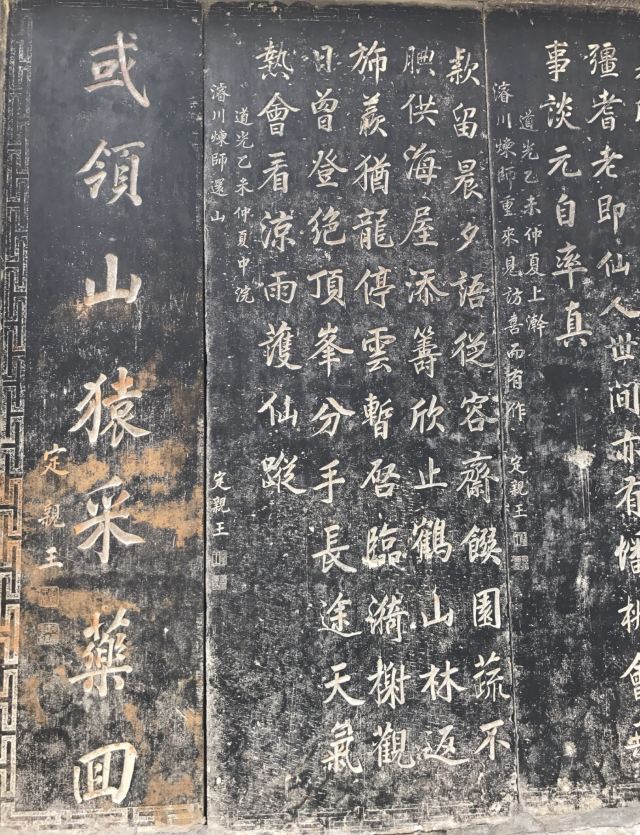 彊耆老即仙人世間亦有蟠桃會
事談元自率真
道光乙未仲夏上澣
濬川煉師重來見訪喜而有作 定親王
款留晨夕語從容齋饌園蔬不
腆供海屋添籌欣止鶴山林返
旆羨猶龍停雲暫啓臨漪榭觀
日曾登絕頂峯分手長途天氣
熱會看涼雨護仙蹤
道光乙未仲夏中浣
濬川煉師還山 定親王
或領山猿采藥回
定親王